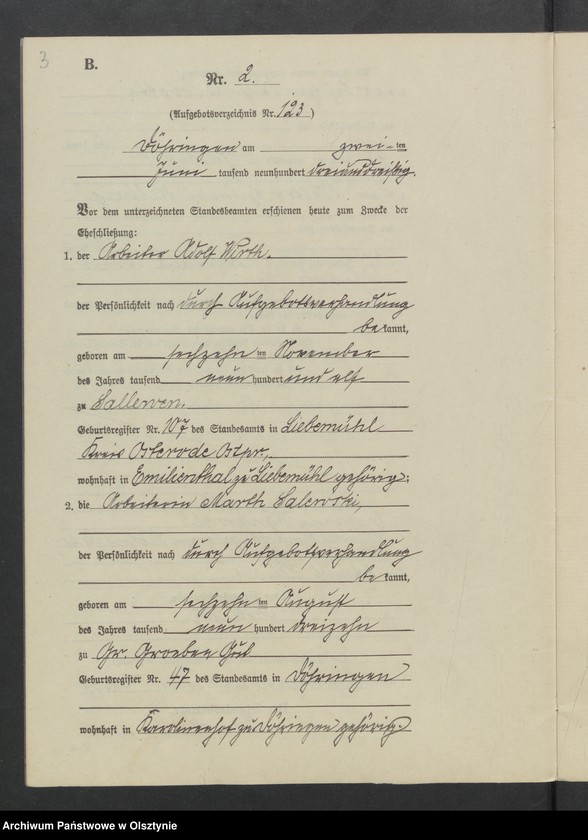 3
B.
Nr. 2.
(Aufgebotsverzeichnis Nr. 123)
Döhringen am zwei-ten
Juni tausend neunhundert dreiunddreißig.
Vor dem unterzeichneten Standesbeamten erschienen heute zum Zwecke der
Eheschließung:
1. der Arbeiter Adolf Wirth.
der Persönlichkeit nach durch Aufgebotsverhandlung
be kannt,
geboren am sechzehn ten November
des Jahres tausend neun hundert und elf
zu
Geburtsregister Nr. 107 des Standesamts in Liebemühl
Kreis Osterode Ostpr.,
wohnhaft in Emilienthal zu Liebemühl gehörig;
2. die Arbeiterin Marth Salewski,
der Persönlichkeit nach durch Aufgebotsverhandlung
be kannt,
geboren am sechzehn ten August
des Jahres tausend neun hundert dreizehn
zu Gr. Groeben Gut
Geburtsregister Nr. 47 des Standesamts in Döhringen
wohnhaft in Karolinenhof zu Döhringen gehörig.
Archiwum Państwowe w Olsztynie